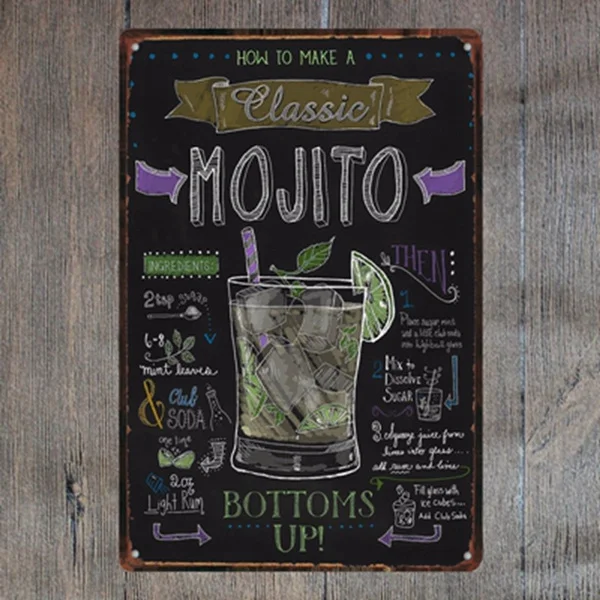 HOW TO MAKE A
Classic
MOJITO
INGREDIENTS:
2 tsp sugar
6-8
mint leaves
& Club
SODA
one lime
2oz
Light Rum
THEN
1.
Place sugar, mint
and a little club soda
into highball glass
2 Mix to
Dissolve
SUGAR
3 squeeze juice from
lime into glass...
add rum and lime
Fill glass with
ice cubes...
Add Club Soda
BOTTOMS
UP!